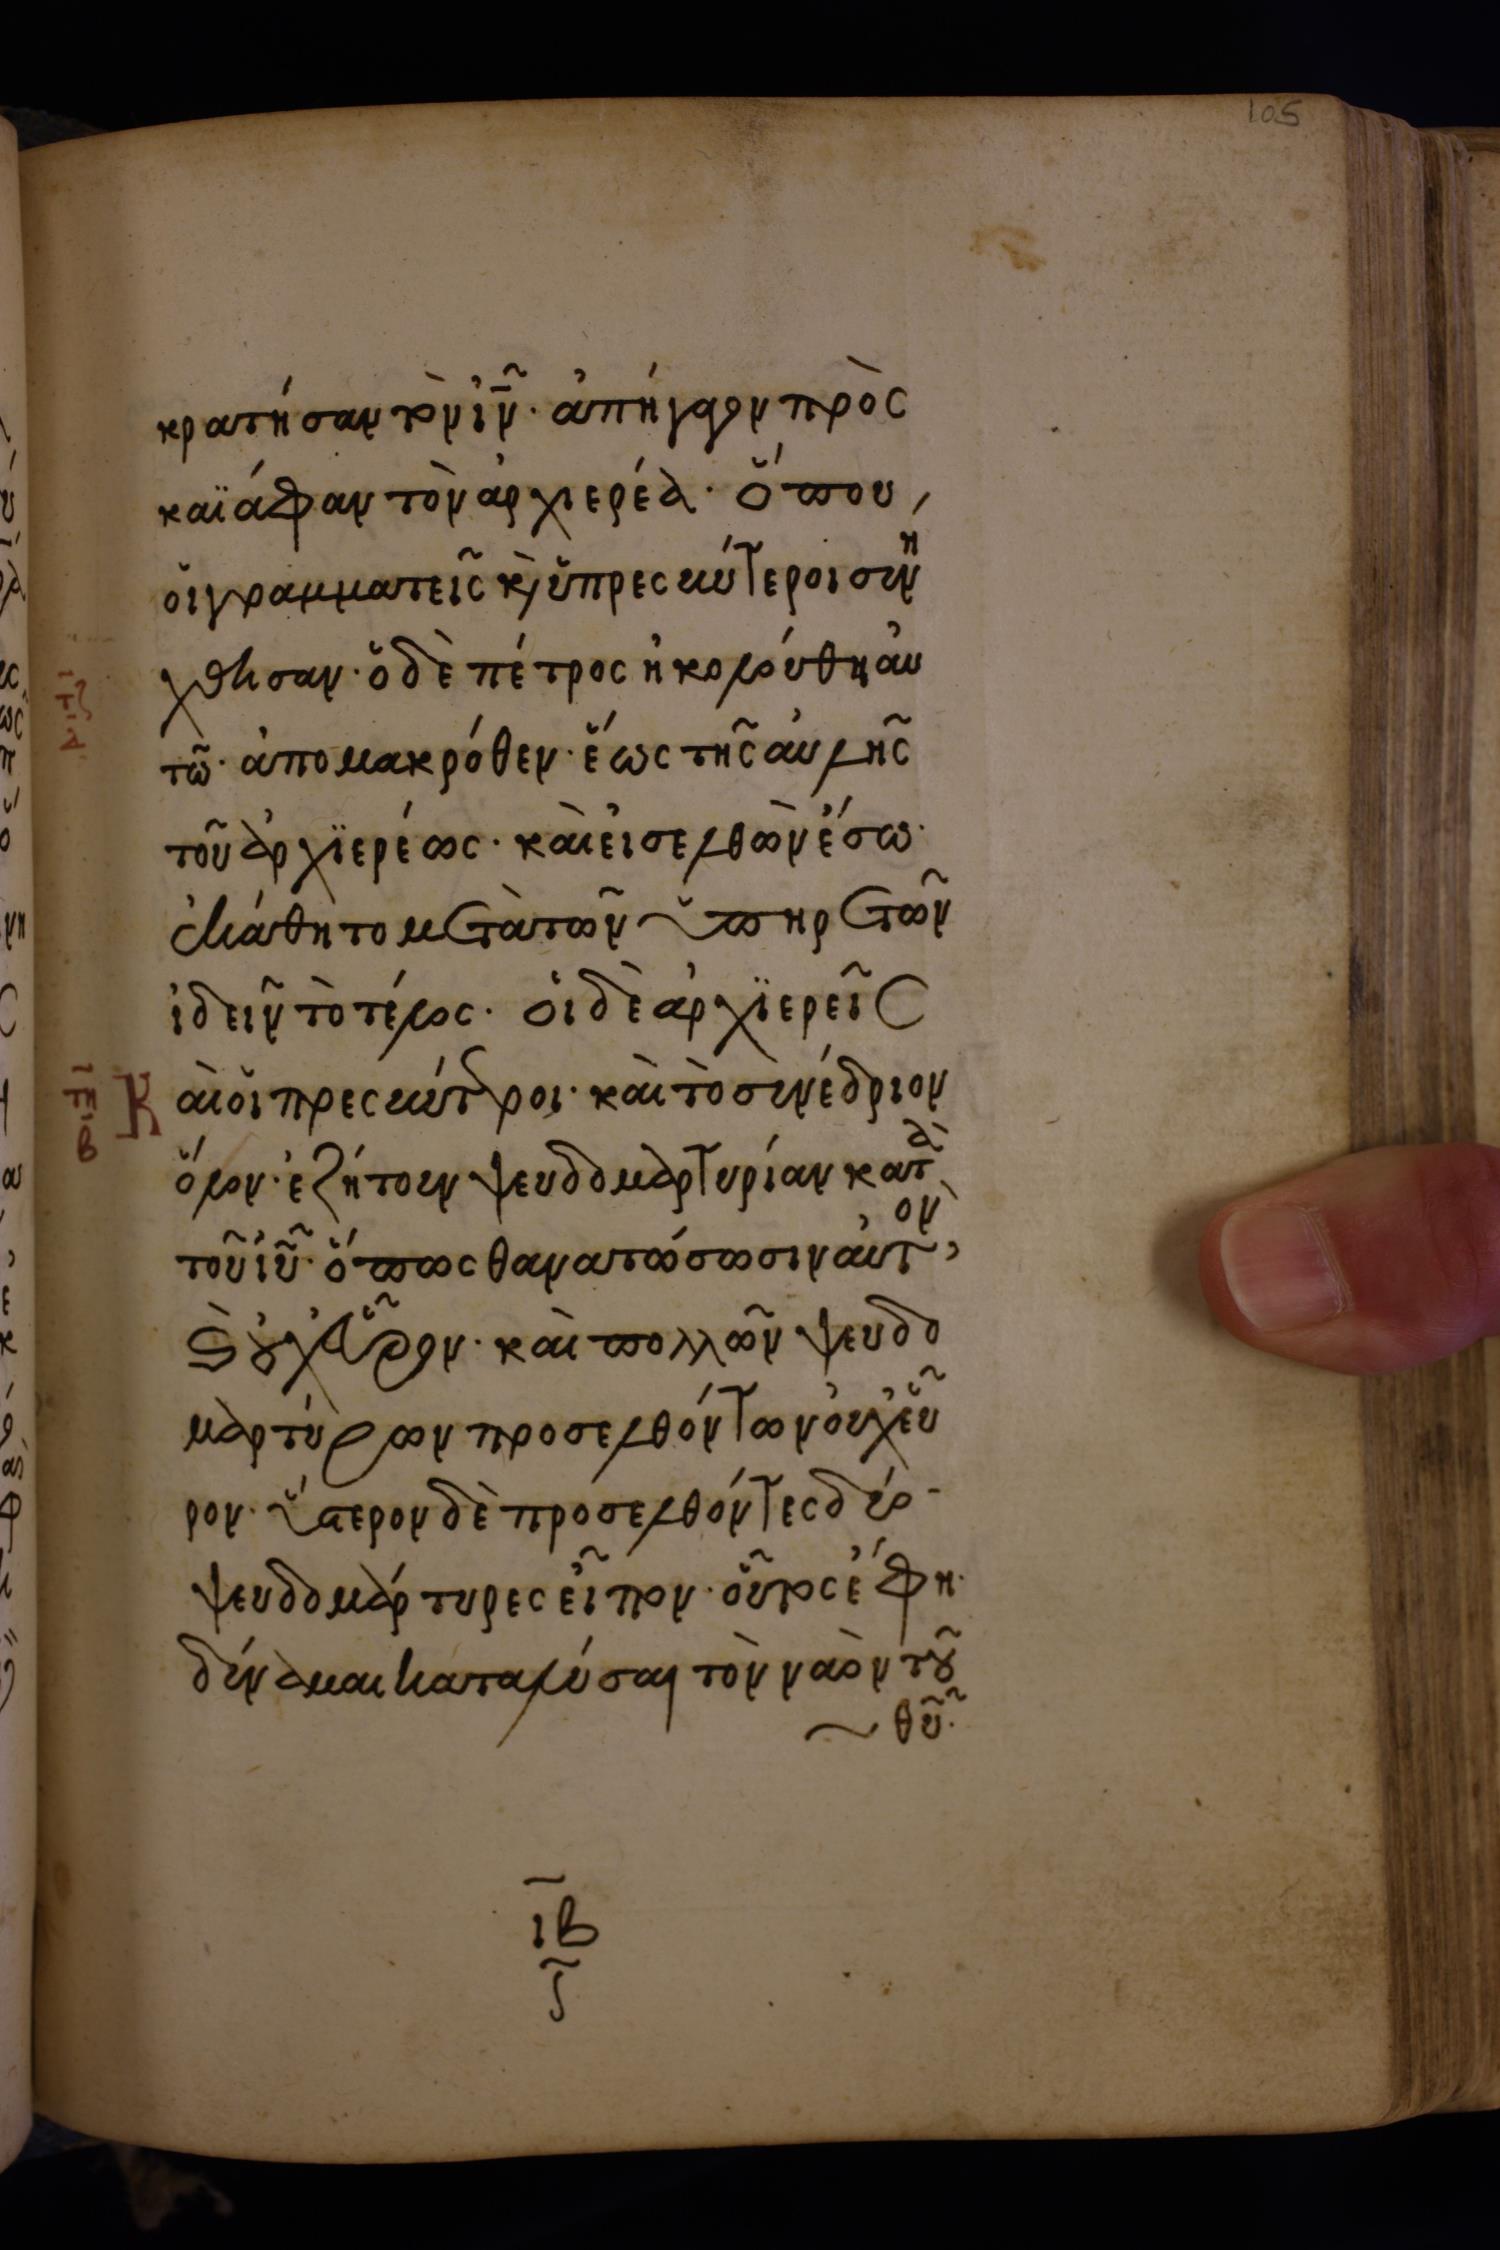 105
κρατήσαν τὸν ἰν̄. ἀπήγαγον πρὸς
καϊάφαν τὸν ἀρχιερέα. ὅπου
οἱ γραμματεῖς κ̀ οἱ πρεσβύτεροι συνή
χθησαν. ὁ δὲ πέτρος ἠκολούθη αὐ
τῶ. ἀπο μακρόθεν. ἕως τῆς αὐλῆς
τοῦ ἀρχϊερέως. καὶ εἰσελθὼν ἔσω.
ἐκάθητο μετὰ τῶν ὑπηρετῶν
ἰδεῖν τὸ τέλος. οἱ δὲ ἀρχϊερεῖς
τ̄ζ
δ
τ̄η
β
Κ
αὶ οἱ πρεσβύτεροι. καὶ τὸ συνέδριον
ὅλον. ἐζήτουν ψευδομαρτυρίαν κατὰ
τοῦ ἰῦ. ὅπως θανατώσωσιν αὐτὸν,
κ̀ οὐχ εὗρον. καὶ πολλῶν ψευδο
μαρτύρων προσελθόντων οὐχ εὗ
ρον. ὕστερον δὲ προσελθόντες δύο
ψευδομάρτυρες εἶπον. οὗτος ἔφη.
δύναμαι καταλύσαι τὸν ναὸν τοῦ
θῦ.
ῑβ
ς̄